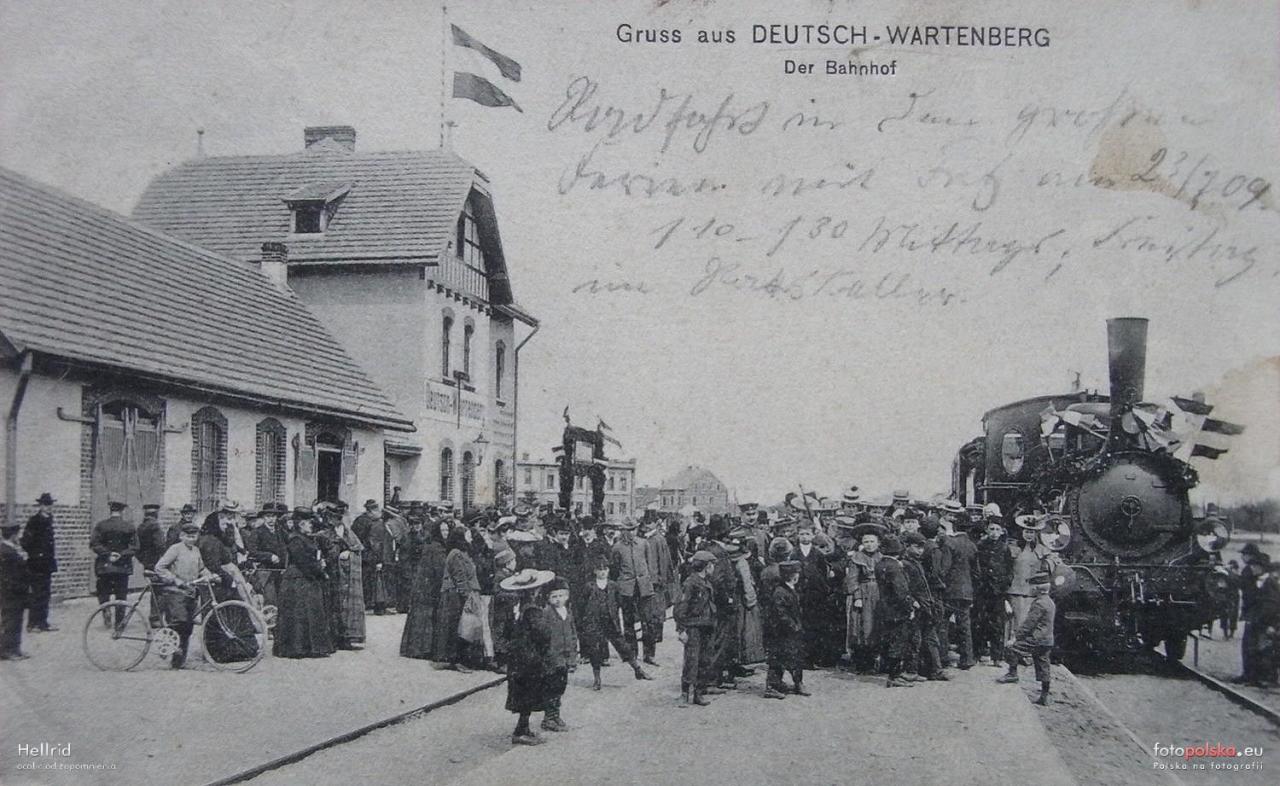 Gruss aus DEUTSCH-WARTENBERG
Der Bahnhof
Radfahrt in den großen
Ferien mit am 23/7 09.
110-130 Mittags, Freitag
im
DEUTSCH-WARTENBERG
Hellrid
ocalić od zapomnienia
fotopolska.eu
Polska na fotografii